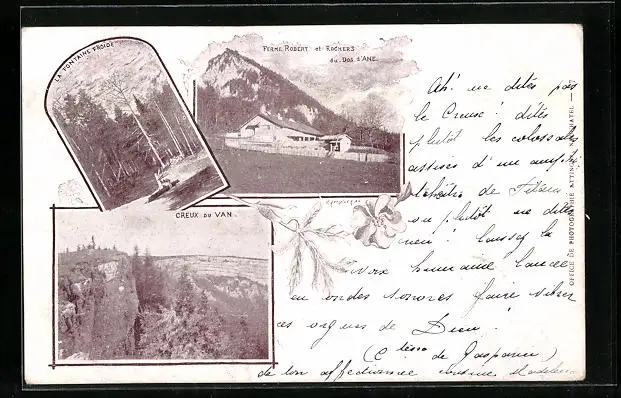 LA FONTAINE FROIDE
FERME ROBERT et ROCHERS
du DOS d'ANE.
CREUX DU VAN
Ah! ne dites pas
le Creux! dites
plutôt les colossales
assises d'un amphi
théâtre de Titans
ou plutôt ne dites
rien! laissez la
voix humaine lancée
en ondes sonores faire vibrer
ces orgues de Dieu!
(Ctesse de Gasparin)
de ton affectionnée cousine
OFFICE DE PHOTOGRAPHIE ATTINGER, NEUCHATEL